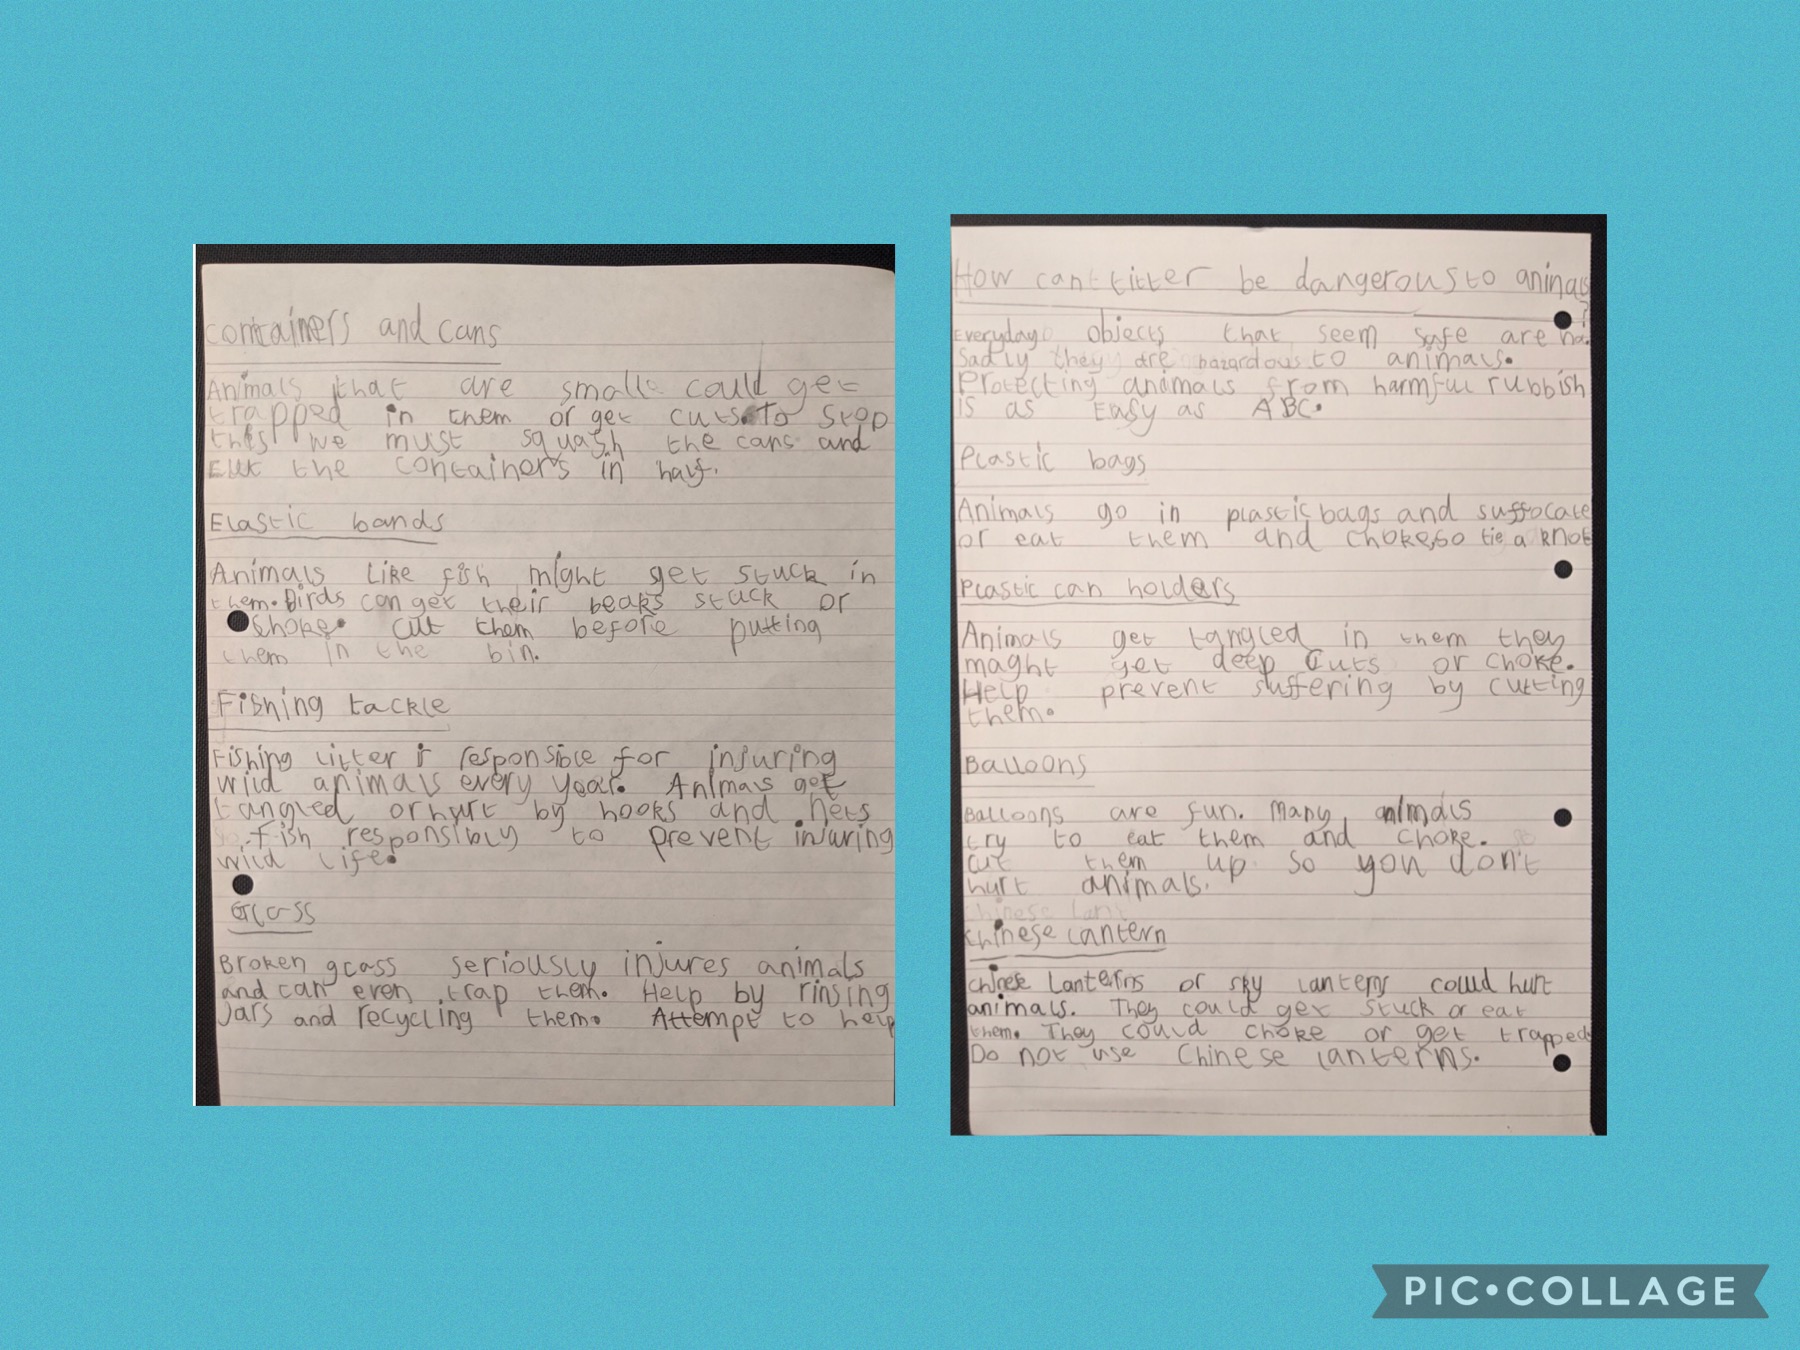 Containers and cans
Animals that are small could get
trapped in them or get cuts. To stop
this we must squash the cans and
cut the containers in half.
Elastic bands
Animals like fish might get stuck in
them. Birds can get their beaks stuck or
choke. cut them before putting
them in the bin.
Fishing tackle
Fishing litter is responsible for injuring
wild animals every year. Animals get
tangled or hurt by hooks and nets
. Fish responsibly to prevent injuring
wild life.
Glass
Broken glass seriously injures animals
and can even trap them. Help by rinsing
Jars and recycling them. Attempt to help
How can litter be dangerous to animals
?
Everyday objects that seem safe are
Sadly they are hazardous to animals.
Protecting animals from harmful rubbish
is as Easy as ABC.
Plastic bags
Animals go in plastic bags and suffocate
or eat them and choke, so tie a knot
Plastic can holders
Animals get tangled in them they
maght get deep cuts or choke.
Help prevent suffering by cutting
them.
Balloons
Balloons are fun. Many animals
try to eat them and choke.
cut them up so you don't
hurt animals.
Chinese lantern
chinese lanterns or sky lanterns could hurt
animals. They could get stuck or eat
them. They could choke or get trapped
Do not use Chinese lanterns.
PIC•COLLAGE